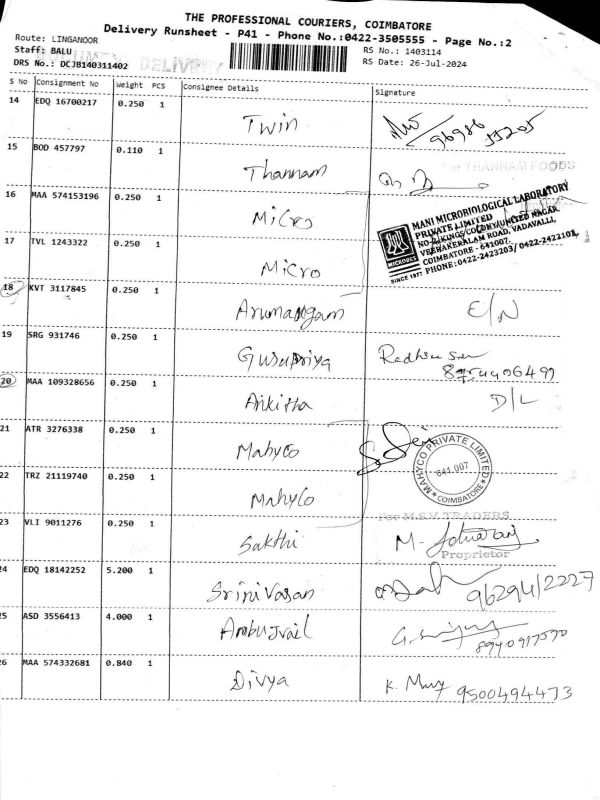 THE PROFESSIONAL COURIERS, COIMBATORE
Delivery Runsheet - P41 - Phone No.:0422-3505555 - Page No.:2
Route: LINGANOOR
RS No.: 1403114
Staff: BALU
DELIVERY
RS Date: 26-Jul-2024
DRS No.: DCJB140311402
S No Consignment No Weight PCS Consignee Details Signature
14 EDQ 16700217 0.250 1 Twin
15 BOD 457797 0.110 1 Thannam For THANNAM FOODS
16 MAA 574153196 0.250 1 Micro
MANI MICROBIOLOGICAL LABORATORY
PRIVATE LIMITED
NO-2, KINGS COLONY/UNITED NAGAR
VEERAKERALAM ROAD, VADAVALLI,
COIMBATORE - 641007.
PHONE: 0422-2423203/ 0422-2422103
SINCE 1977
17 TVL 1243322 0.250 1 Micro
18 KVT 3117845 0.250 1 Arumangam E/N
19 SRG 931746 0.250 1 Gurupriya
20 MAA 109328656 0.250 1 Ankitha D/L
21 ATR 3276338 0.250 1 Mahyco
MAHYCO PRIVATE LIMITED
641.007
COIMBATORE
22 TRZ 21119740 0.250 1 Mahyco
For M.S.V. TRADERS
23 VLI 9011276 0.250 1 Sakthi
Proprietor
24 EDQ 18142252 5.200 1 Srinivasan 9629412227
25 ASD 3556413 4.000 1
26 MAA 574332681 0.840 1 Divya 9500494473